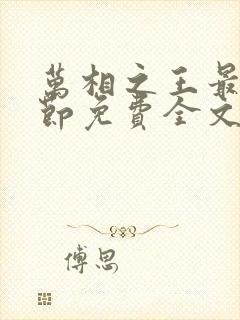 萬相之王最
節免費全文
傅思